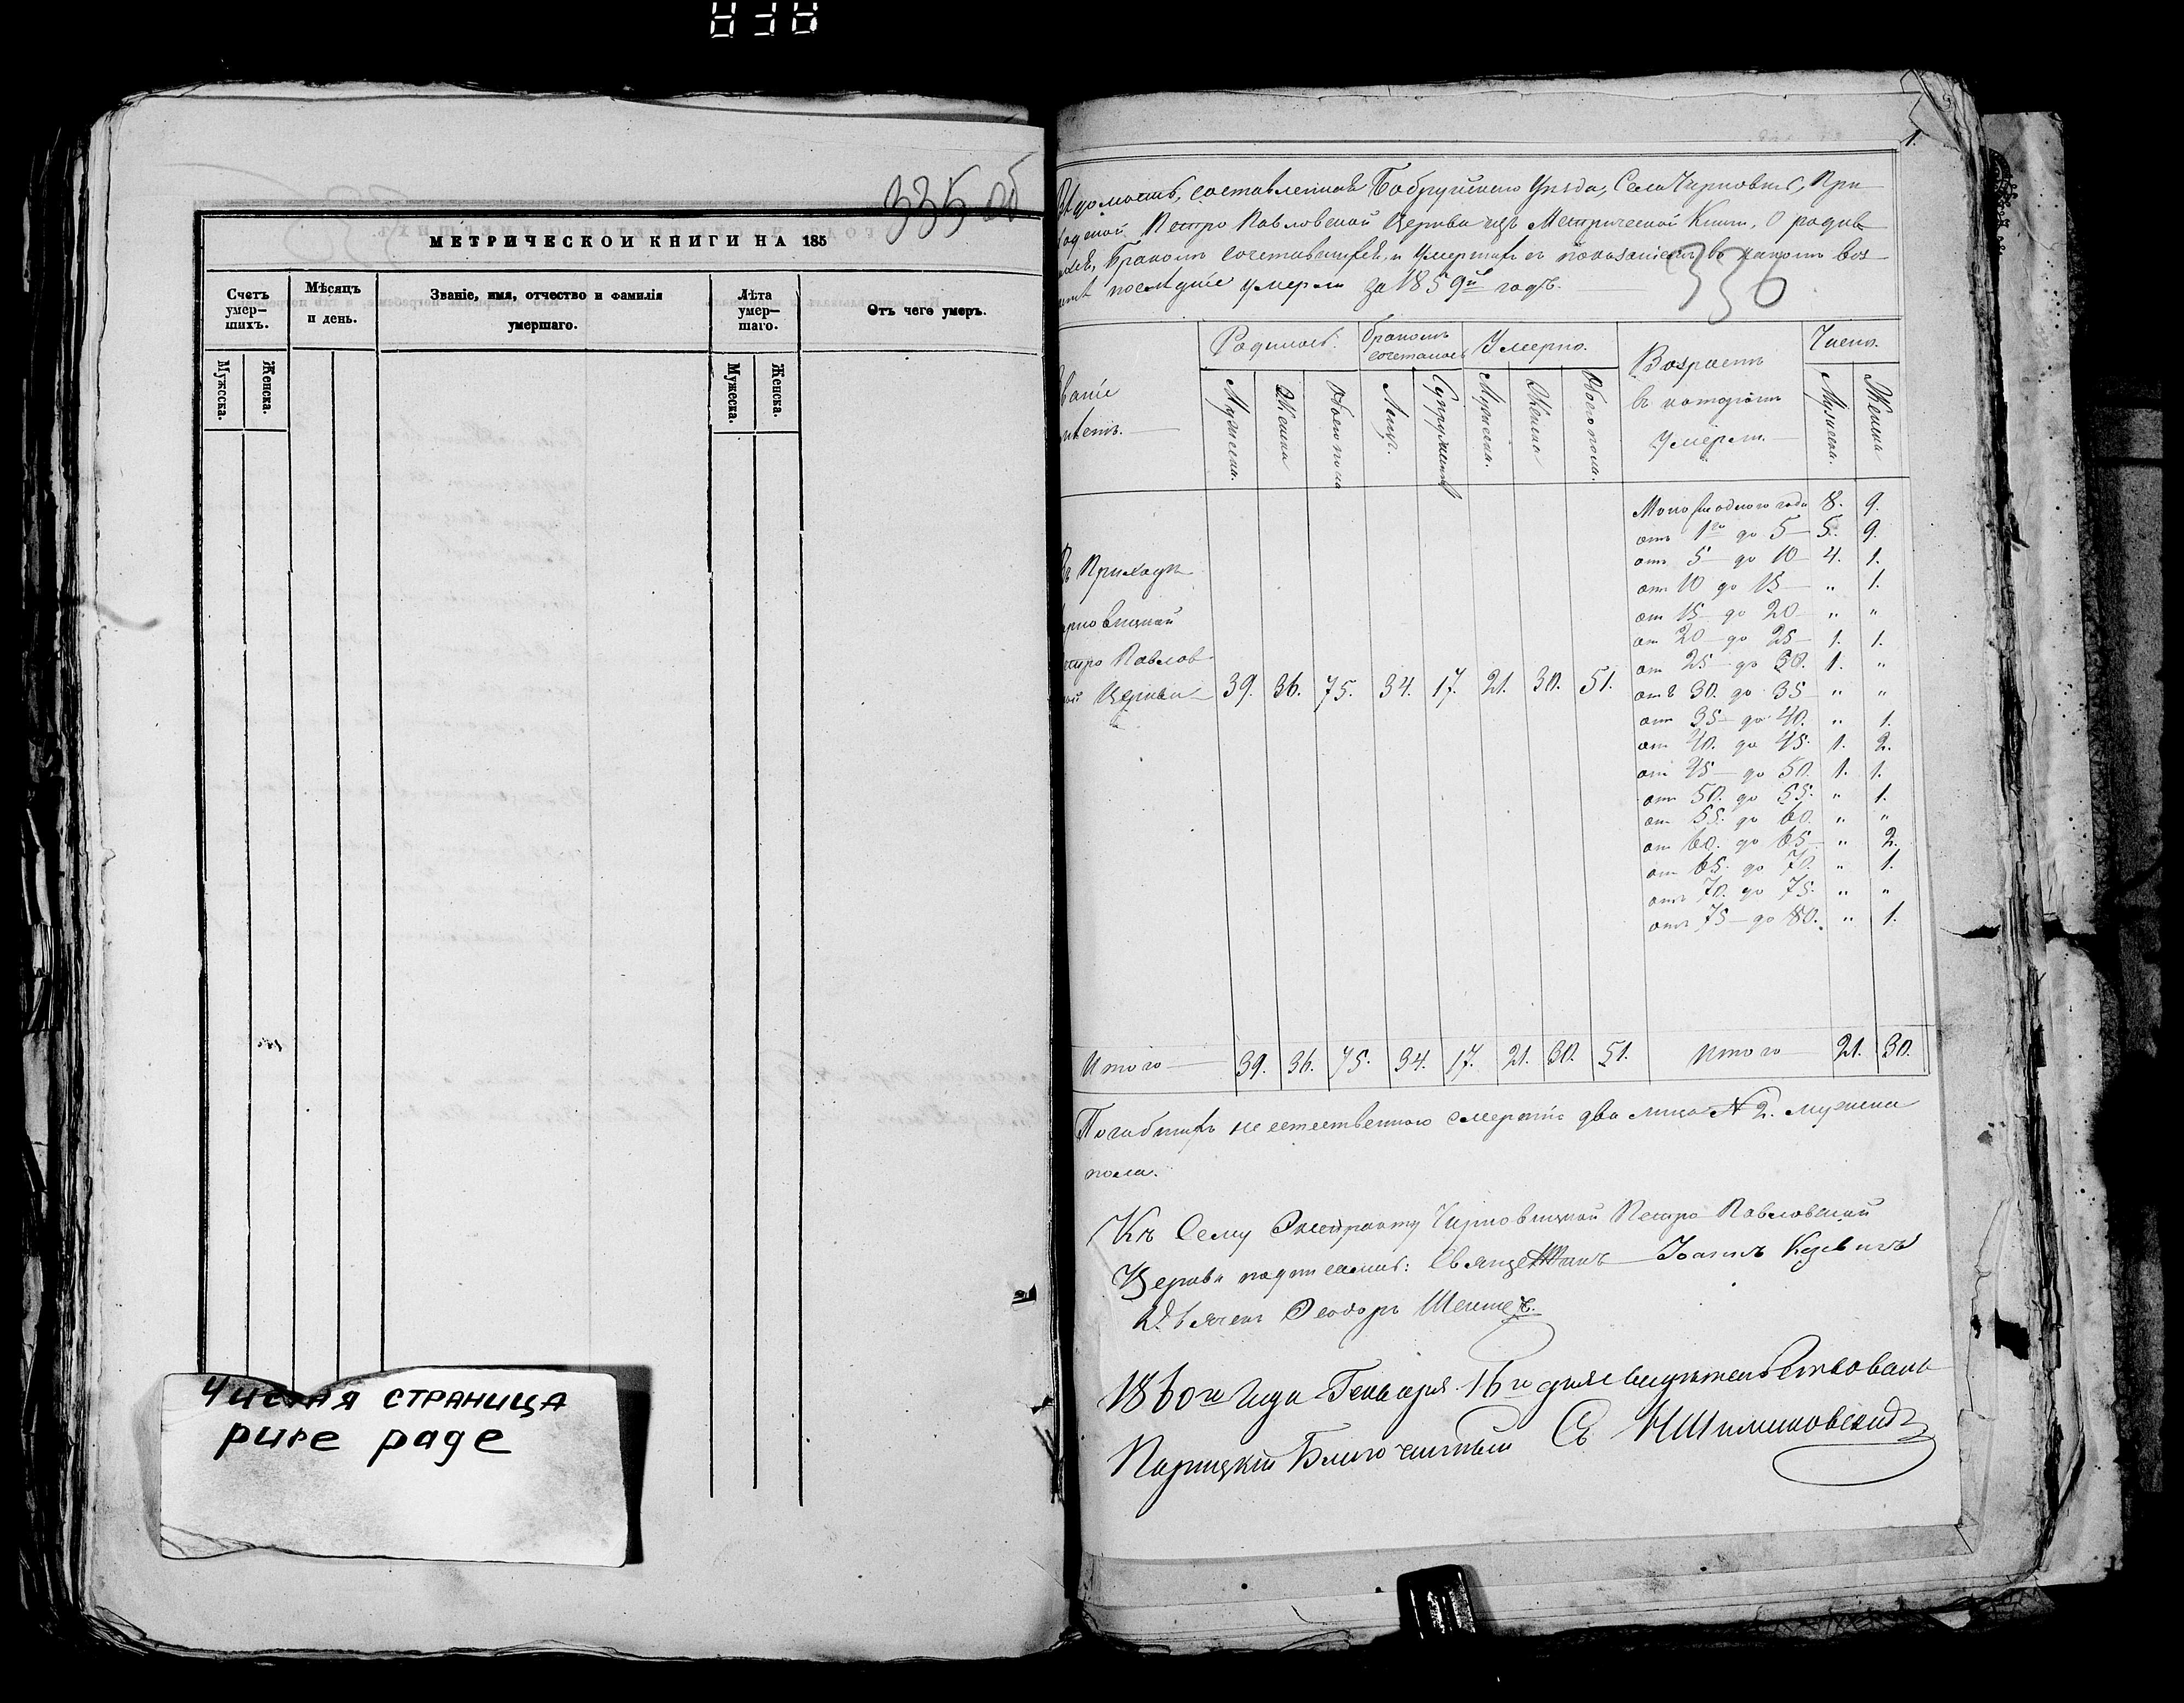 335 об
МЕТРИЧЕСКОЙ КНИГИ НА 185
Счетъ умер-шихъ.
Мѣсяцъ и день.
Званіе, имя, отчество и фамилія умершаго.
Лѣта умер-шаго.
Отъ чего умеръ.
Мужеска.
Женска.
Мужеска.
Женска.
Чистая страница
pure page
1.
Вѣдомость, составленная Бобруйскаго Уѣзда, Села Чирковичь, При
ходской Петро Павловской Церкви изъ Метрической Книги, О родив
шихся, Бракомъ сочетавшихся, и Умершихъ съ показаніемъ въ какомъ воз
послѣдніе умерли за 1859й годъ.
336
Родилось.
Бракомъ сочеталось
Умерло.
Возрастъ
въ которомъ
Умерли.
Число.
Мужеска.
Женска
Обоего пола
Лицъ.
Супружествъ
Мужеска.
Женска
Обоего пола.
Мужеска.
Женска
Въ Приходѣ
Петро Павлов
Церкви
39. 36. 75. 34. 17. 21. 30. 51.
Моложе одного года 8. 9.
отъ 1го до 5 5. 9.
отъ 5 до 10 4. 1.
отъ 10 до 15 " 1.
от 15 до 20 " "
от 20 до 25 1. 1.
от 25 до 30. 1. "
отъ 30. до 35 " "
от 35 до 40. " 1.
от 40. до 45. 1. 2.
от 45 до 50. 1. 1.
от 50. до 55. " 1.
от 55. до 60. " "
от 60. до 65 " 2.
от 65. до 70. " 1.
отъ 70. до 75. " "
отъ 75 до 80. " 1.
Итого 39. 36. 75. 34. 17. 21. 30. 51. Итого 21. 30.
Погибшихъ не естественною смертію два лица N 2. мужеска
пола.
Къ Сему Экстракту Чирковицкой Петро Павловской
Церкви подписались: Священникъ Іоаннъ
Дьячекъ Ѳеодоръ
1860го Года Генваря 16го дня свидѣтельствовалъ
Парицкій Благочинный